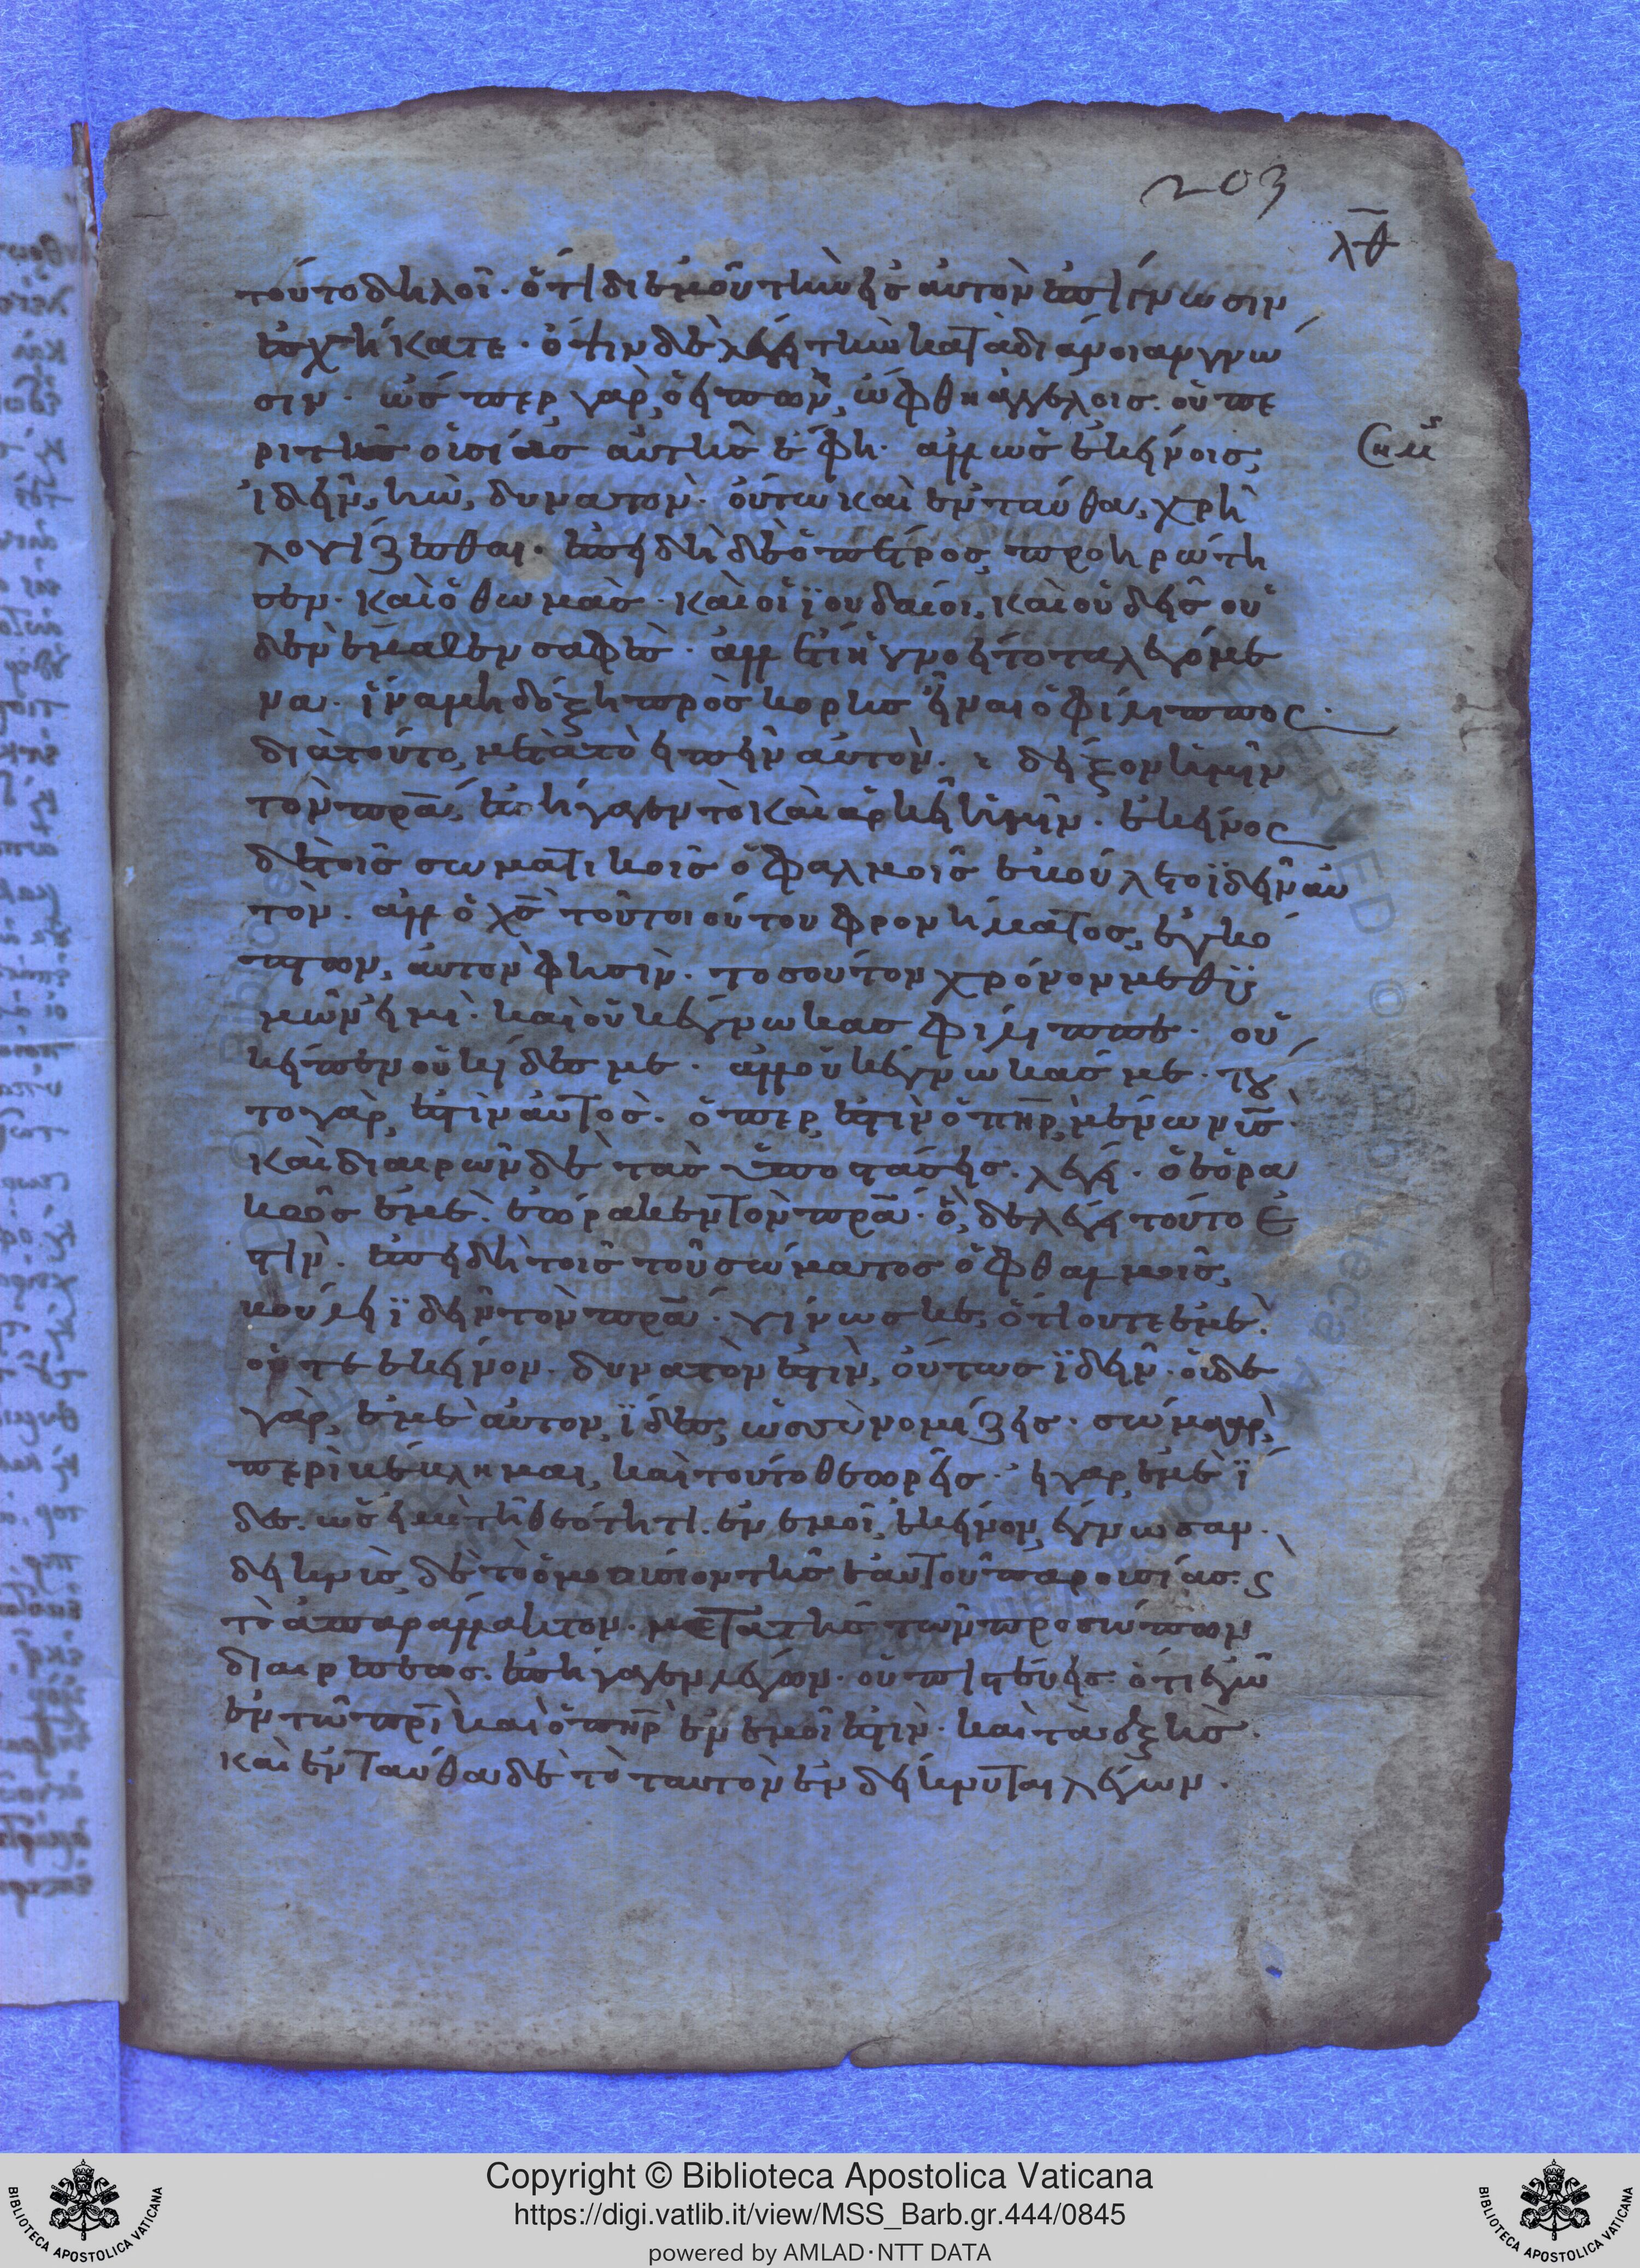 203
λθ
τοῦτο δηλοῖ· ὅτι δι ἐμοῦ τὴν εἰς αὐτὸν ἐπίγνωσιν
ἐσχήκατε· ὄψιν δὲ λέγει τὴν κατὰ διάνοιαν γνω
σιν· ὥσπερ γὰρ ὁ εἰπὼν, ὤφθη ἀγγέλοις. οὐ πε
ρὶ τῆς οὐσίας αὐτῆς ἔφη· ἀλλ ὡς ἐκείνοις,
ἰδεῖν, ἦν, δυνατὸν· οὕτω καὶ ἐνταύθα, χρὴ
λογίζεσθαι· ἐπειδὴ δὲ ὁ πέτρος, προηρώτη
σεν· καὶ ὁ θωμὰς· καὶ οἱ ϊουδαίοι, καὶ οὐδεῖς οὐ
δὲν ἔμαθεν σαφὲς· ἀλλ ἔτι ἠγνοεῖτο τα λεγόμε
να· ἵνα μὴ δόξη προσκορὴς εἶναι ὁ φίλιππος·
διὰ τοῦτο, μετὰ τὸ εἰπεῖν αὐτὸν· δεῖξον ἡμῖν
τὸν πρα̅, ἐπήγαγεν τὸ καὶ ἀρκεῖ ἡμῖν· ἐκεῖνος
δὲ τοῖς σωματικοῖς ὀφαλμοῖς ἐβούλετο ϊδεῖν αὐ
τὸν. ἀλλ ὁ χς̅ τοῦ τοιούτου φρονήματος, ἐγκό
πτων, αὐτὸν φησὶν· τοσοῦτον χρόνον μεθ ὑ
μῶν εἰμὶ· καὶ οὐκ ἔγνωκας φίλιππε· οὐκ
εἶπεν οὐκ εἶδες με· ἀλλ οὐκ ἔγνωκάς με· τȣ
το γὰρ, ἐστὶν αὐτὸς· ὅπερ, ἐστὶν ὁ πη̅ρ, μένων υἱς̅·
καὶ διαιρῶν δὲ τὰς ὑποστάσεις· λέγει· ὁ ἑορα
κὼς ἐμὲ· ἑώρακεν τὸν πρα̅· ὃ, δὲ λέγει τοῦτο ἐ
στὶν· ἐπειδὴ τοῖς τοῦ σώματος ὀφθαλμοῖς,
βούλει ϊδεῖν τὸν πρα̅· γίνωσκε, ὅτι οὔτε ἐμὲ·
οὔτε ἐκεῖνον· δυνατὸν ἐστὶν, οὕτως ϊδεῖν· οὐδὲ
γὰρ, ἐμὲ αὐτὸν, ϊδες, ὡς σὺ νομίζεις· σῶμα γὰρ,
περικέκλημαι, καὶ τοῦτο θεωρεῖς· εἰ γαρ, ἐμὲ ϊ
δες. ὡς εἰμὶ τῆ θεότητι. ἐν ἐμοὶ, ἐκεῖνον, ἔγνωσαν·
δεικνὺς, δὲ τὸ ὁμοούσιον τῆς ἑαυτοῦ παρουσίας·
τὸ ἀπαράλλακτον· μετὰ τῆς τῶν προσώπων
διαιρέσεως. ἐπήγαγεν λέγων· οὐ πιστεύεις· ὅτι ἐγὼ
ἐν τῶ πρι̅ καὶ ὁ πη̅ρ ἐν ἐμοὶ ἐστὶν· καὶ τὰ ἑξῆς·
καὶ ἐνταύθα δὲ τὸ ταυτὸν ἐνδείκνυται λέγων·
Copyright © Biblioteca Apostolica Vaticana
https://digi.vatlib.it/view/MSS_Barb.gr.444/0845
powered by AMLAD·NTT DATA
BIBLIOTECA APOSTOLICA VATICANA
BIBLIOTECA APOSTOLICA VATICANA